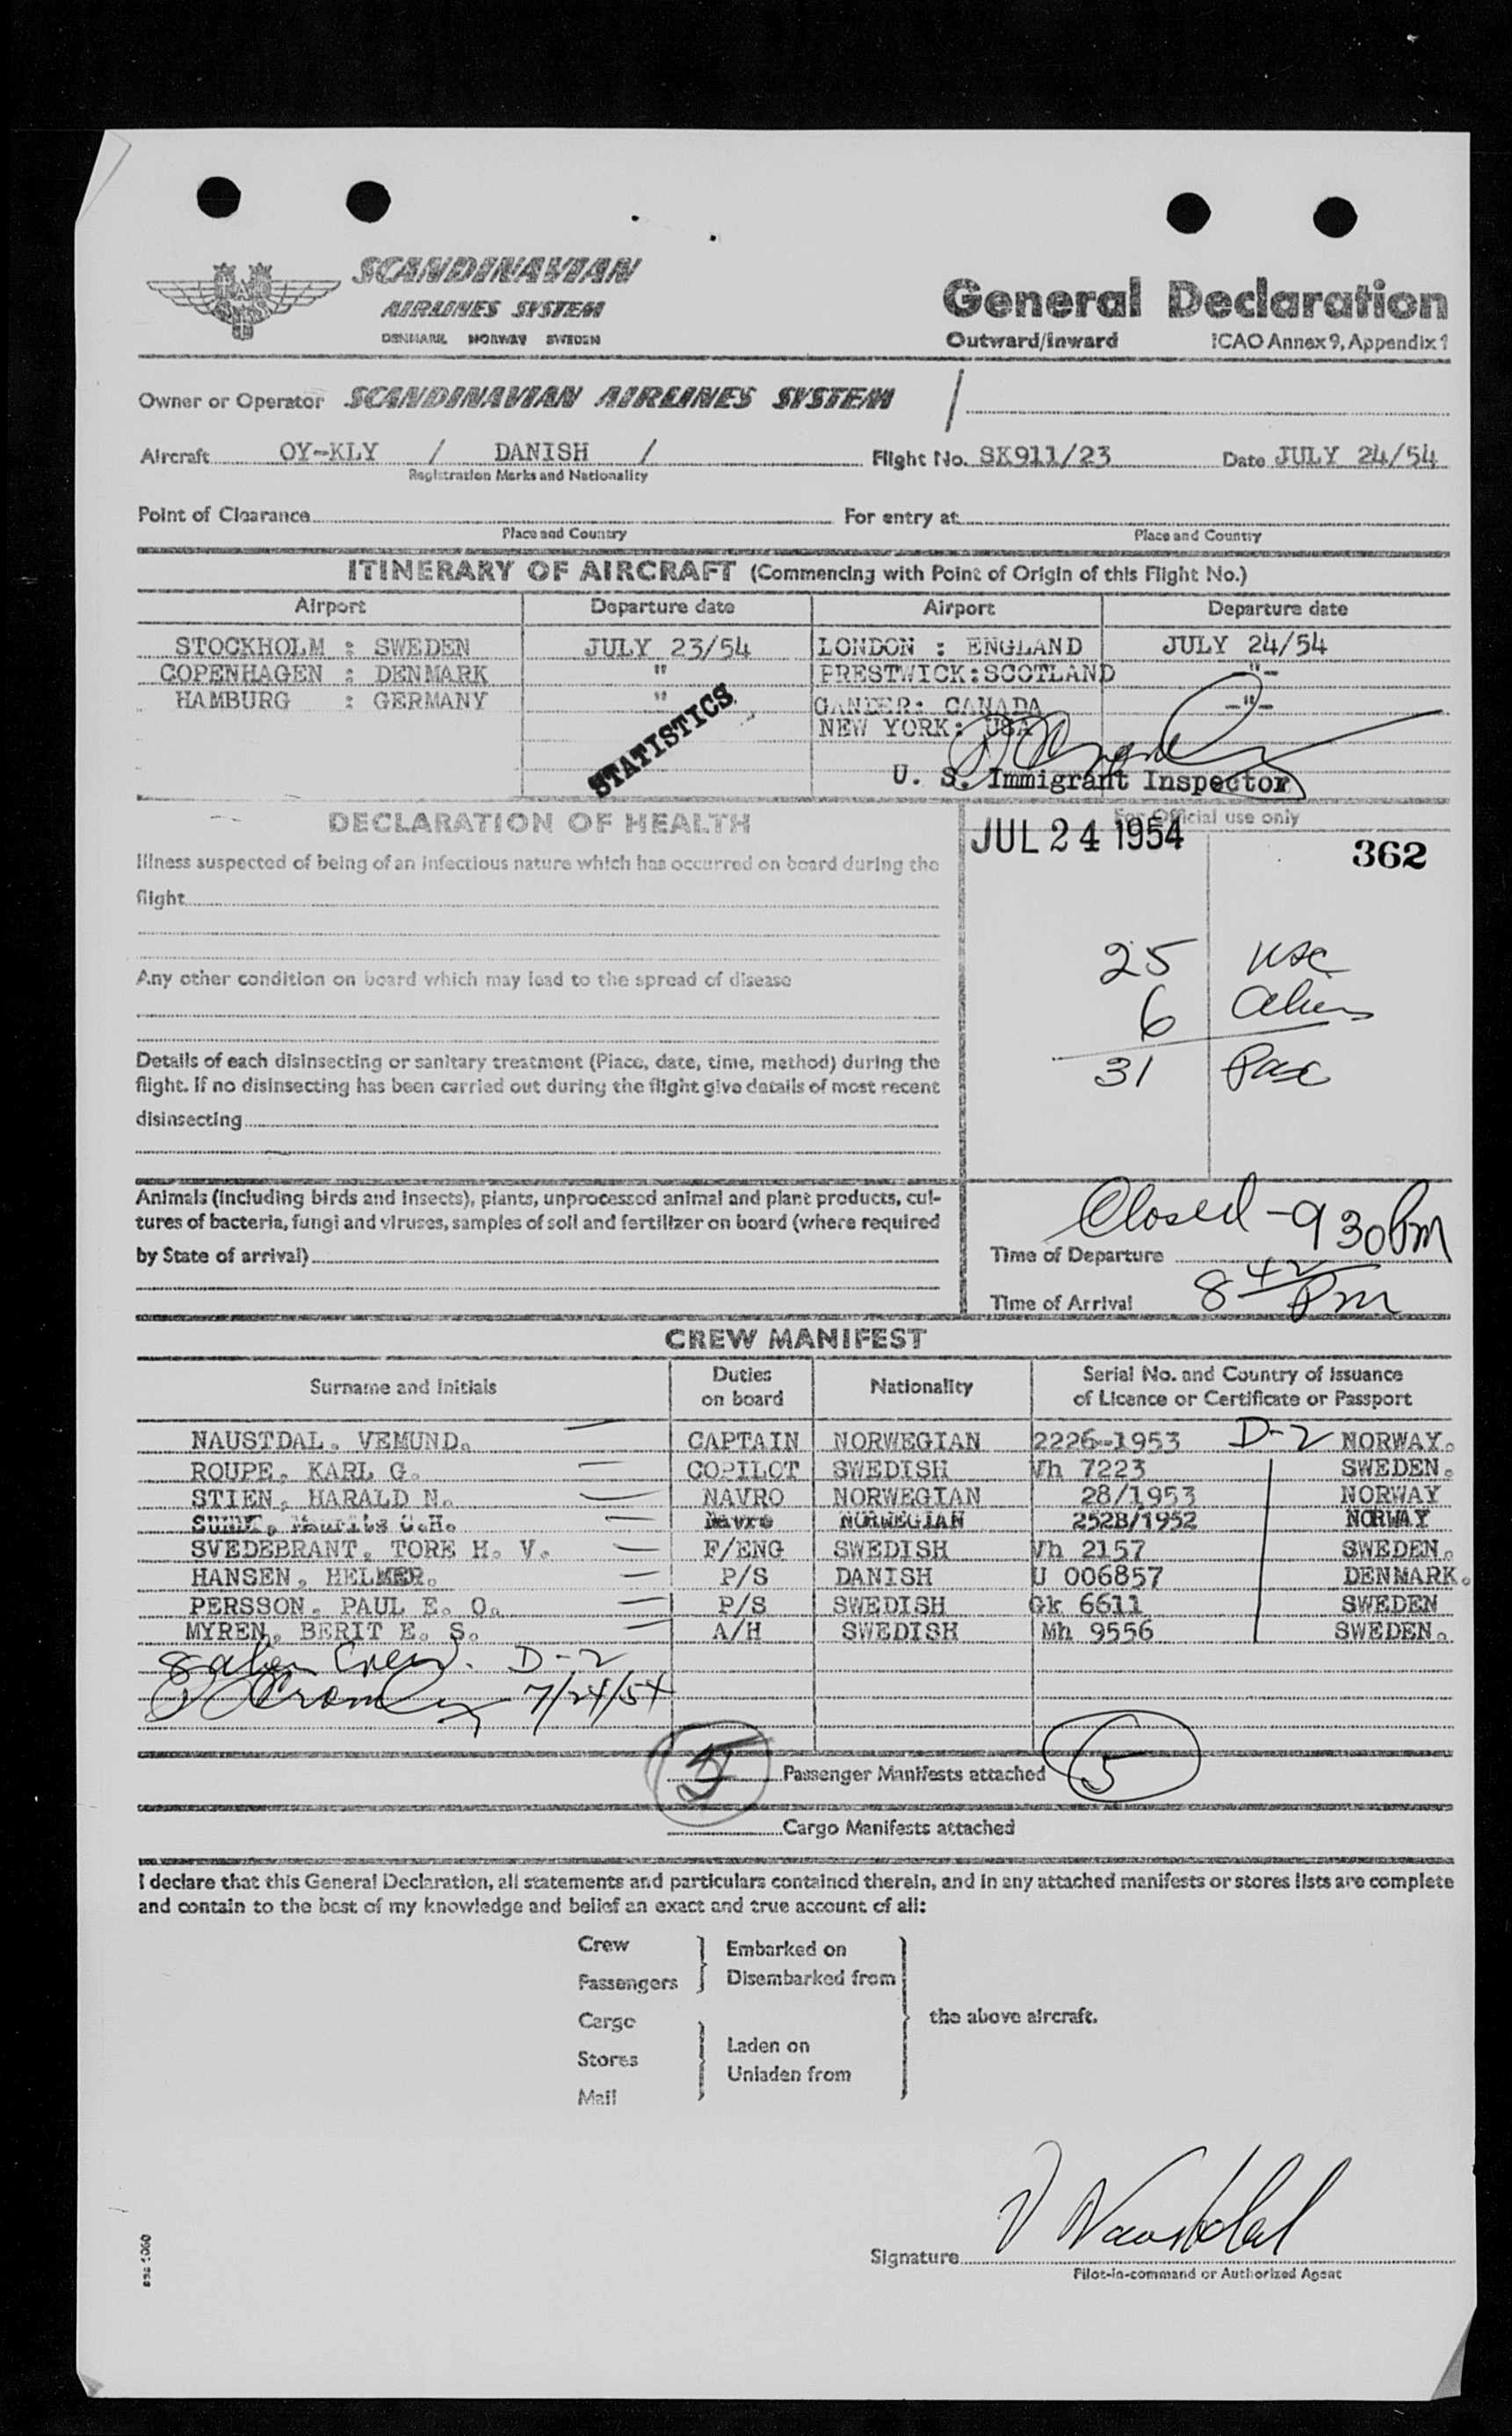 SCANDINAVIAN
AIRLINES SYSTEM
DENMARK NORWAY SWEDEN
General Declaration
Outward/Inward ICAO Annex 9, Appendix 1
Owner or Operator SCANDINAVIAN AIRLINES SYSTEM /
Aircraft OY-KLY / DANISH / Flight No. SK911/23 Date JULY 24/54
Registration Marks and Nationality
Point of Clearance For entry at
Place and Country Place and Country
ITINERARY OF AIRCRAFT (Commencing with Point of Origin of this Flight No.)
Airport Departure date Airport Departure date
STOCKHOLM : SWEDEN JULY 23/54 LONDON : ENGLAND JULY 24/54
COPENHAGEN : DENMARK " PRESTWICK:SCOTLAND "-
HAMBURG : GERMANY " GANDER: CANADA -"-
NEW YORK: USA
STATISTICS
U. S. Immigrant Inspector
DECLARATION OF HEALTH
For Official use only
JUL 24 1954
362
Illness suspected of being of an infectious nature which has occurred on board during the
flight
25 USC
Any other condition on board which may lead to the spread of disease
6 Aliens
31 Pax
Details of each disinsecting or sanitary treatment (Place, date, time, method) during the
flight. If no disinsecting has been carried out during the flight give details of most recent
disinsecting
Animals (including birds and insects), plants, unprocessed animal and plant products, cul-
tures of bacteria, fungi and viruses, samples of soil and fertilizer on board (where required
by State of arrival)
Closed - 9 30 PM
Time of Departure
Time of Arrival 8 42 Pm
CREW MANIFEST
Surname and Initials Duties on board Nationality Serial No. and Country of Issuance of Licence or Certificate or Passport
NAUSTDAL, VEMUND. CAPTAIN NORWEGIAN 2226-1953 D-2 NORWAY.
ROUPE, KARL G. COPILOT SWEDISH Vh 7223 SWEDEN.
STIEN, HARALD N. NAVRO NORWEGIAN 28/1953 NORWAY
Maurits C.H. Navro NORWEGIAN 2528/1952 NORWAY
SVEDEBRANT, TORE H. V. F/ENG SWEDISH Vh 2157 SWEDEN.
HANSEN, HELMER. P/S DANISH U 006857 DENMARK.
PERSSON, PAUL E. O. P/S SWEDISH Gk 6611 SWEDEN
MYREN, BERIT E. S. A/H SWEDISH Mh 9556 SWEDEN.
8 alien Crew. D-2
7/24/54
Passenger Manifests attached 5
Cargo Manifests attached
I declare that this General Declaration, all statements and particulars contained therein, and in any attached manifests or stores lists are complete
and contain to the best of my knowledge and belief an exact and true account of all:
Crew Embarked on
Passengers Disembarked from
Cargo the above aircraft.
Stores Laden on
Mail Unladen from
V Naustdal
Signature
Pilot-in-command or Authorized Agent